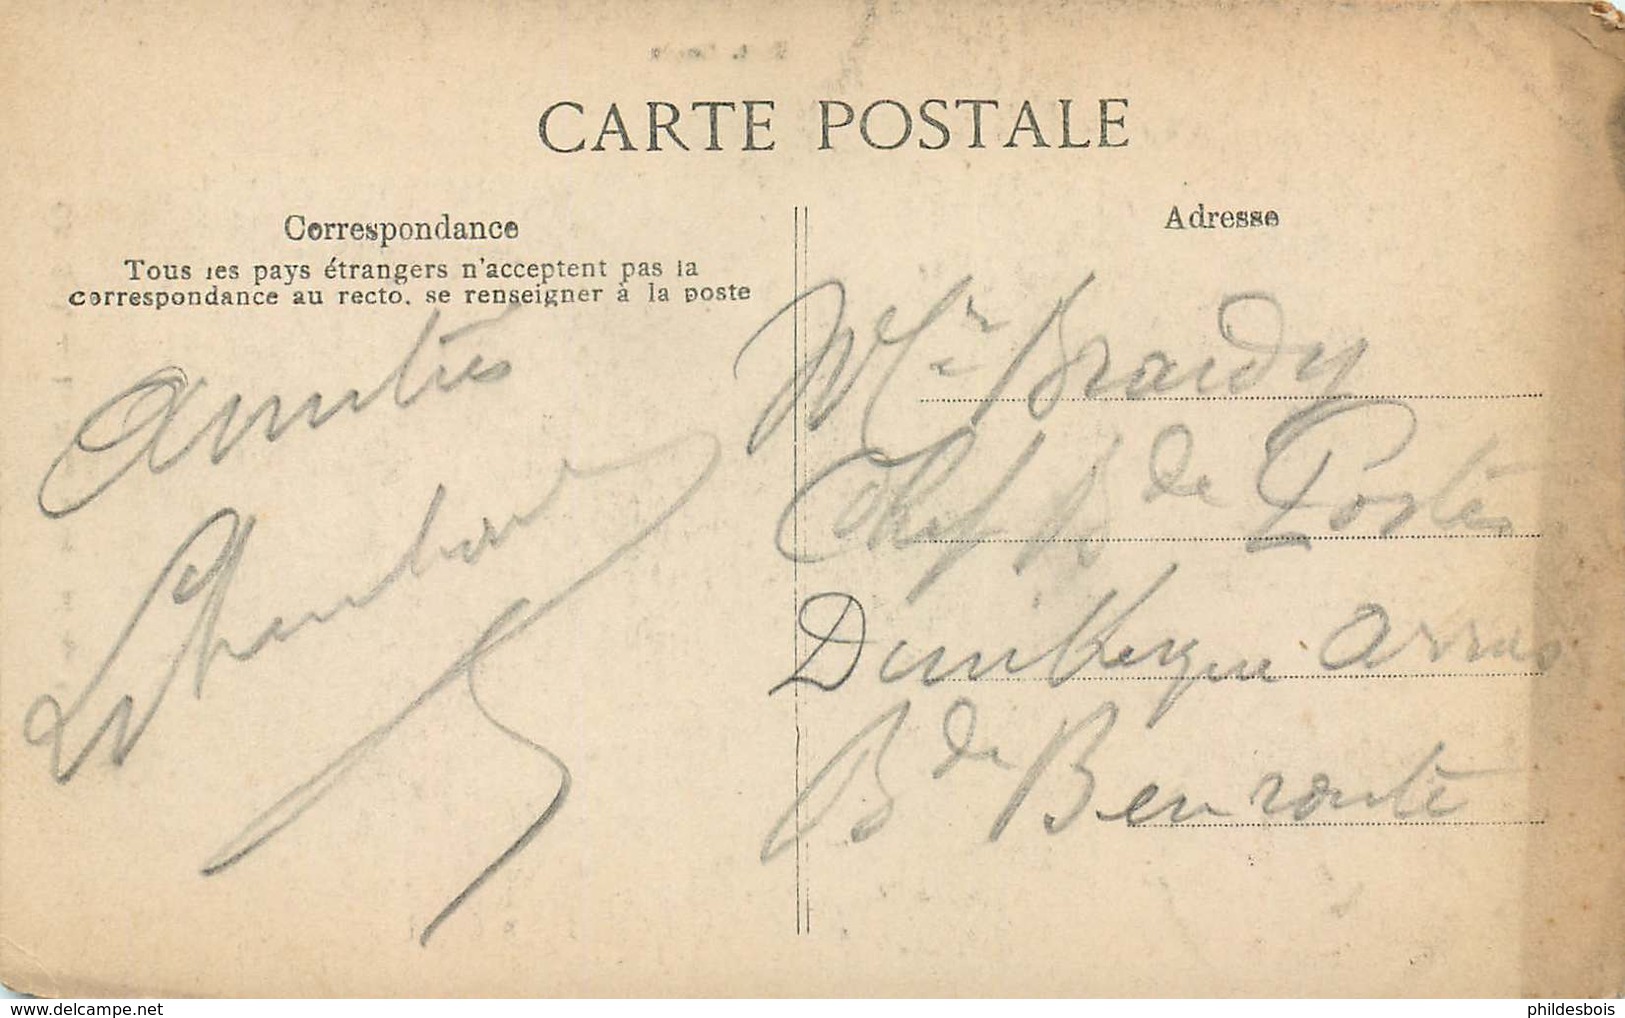 CARTE POSTALE
Correspondance
Tous les pays étrangers n'acceptent pas la
correspondance au recto. se renseigner à la poste
Amitiés
Adresse
Mr
Chef de Postes
Dunkerque Arras
B de B en route
www.delcampe.net
phildesbois